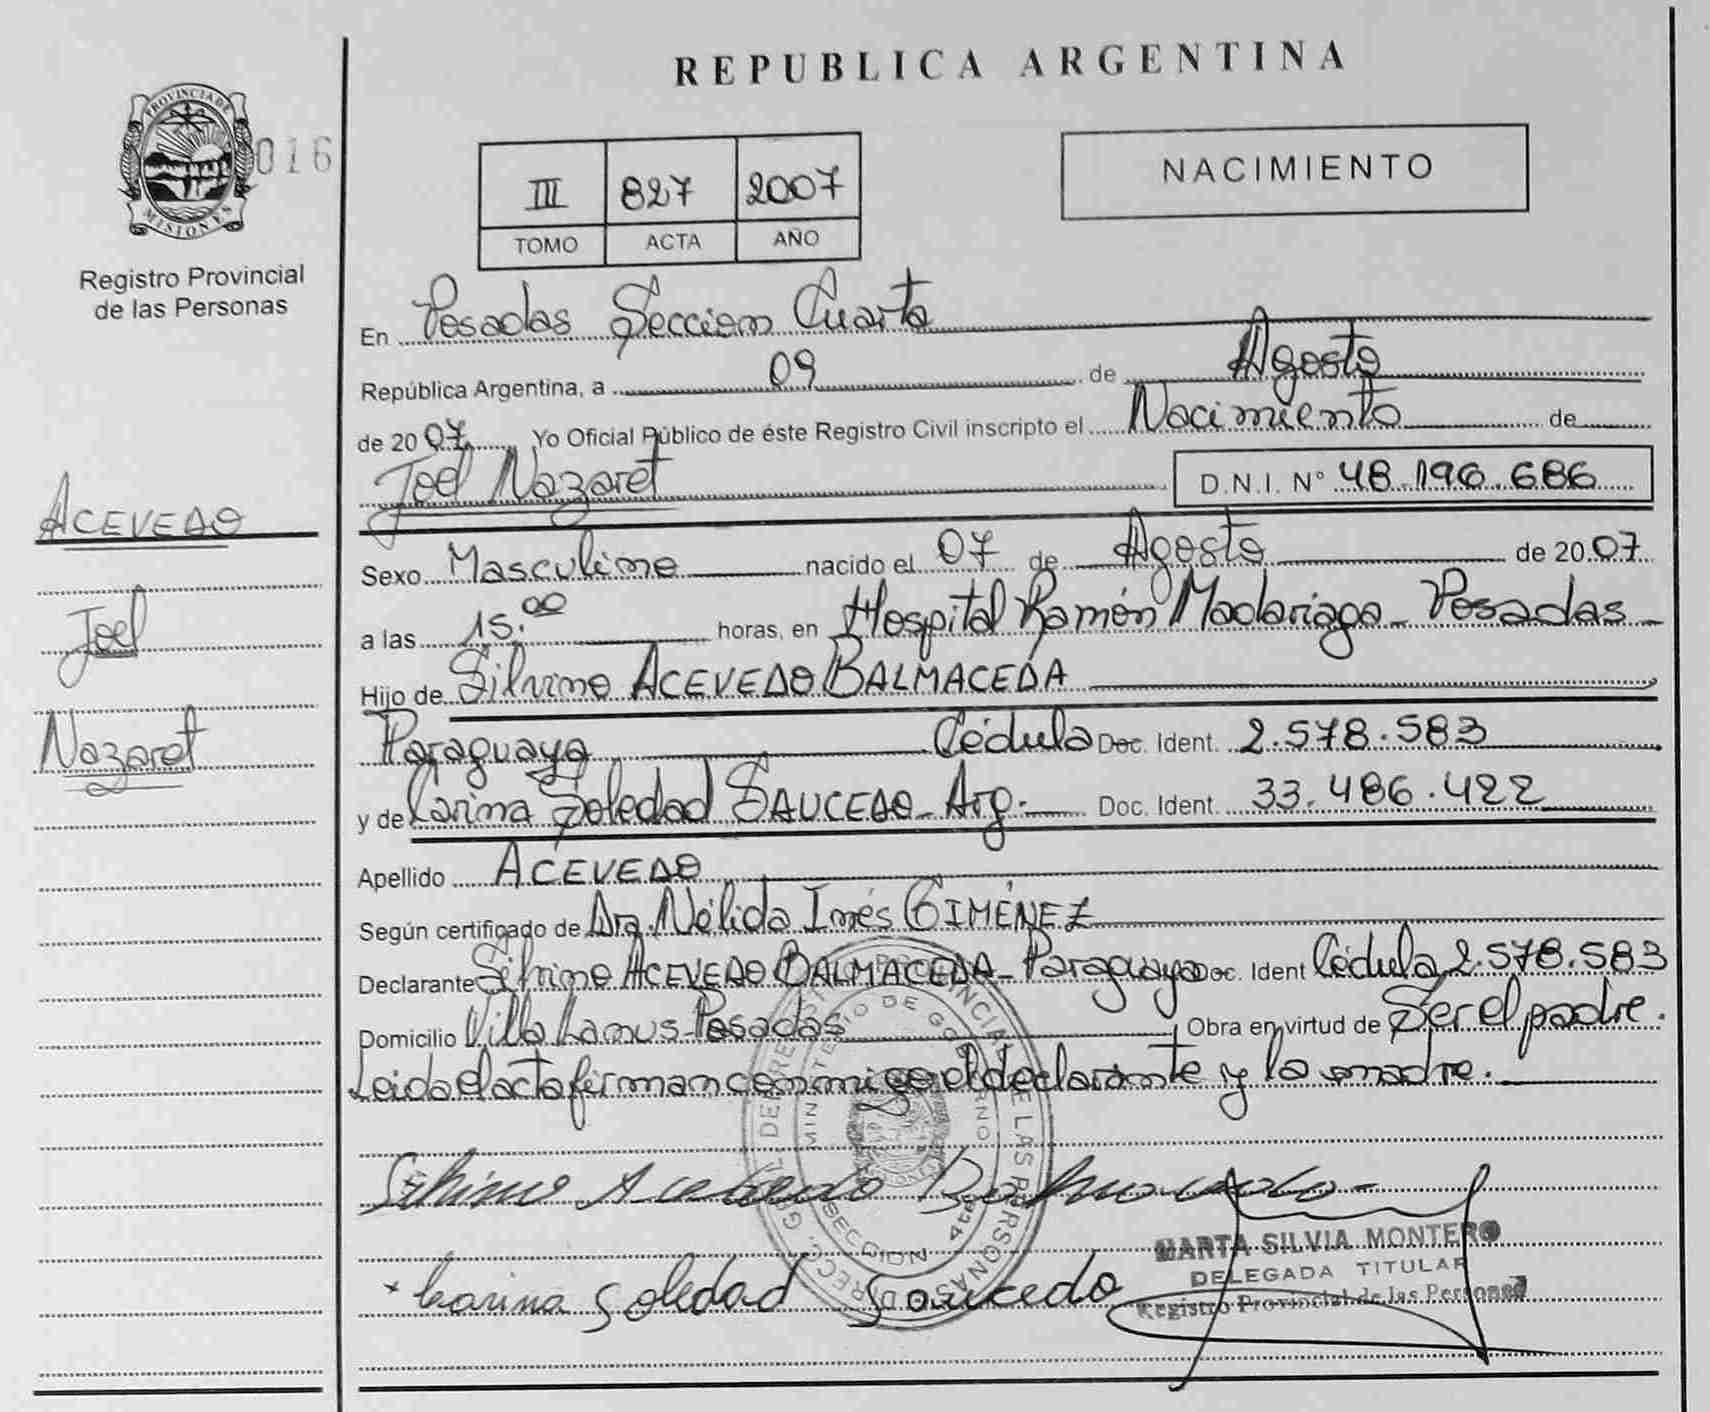 REPUBLICA ARGENTINA
PROVINCIA DE
MISIONES
016
Registro Provincial
de las Personas
III 827 2007
TOMO ACTA AÑO
NACIMIENTO
En Posadas Sección Cuarta
República Argentina, a 09 de Agosto
de 2007 Yo Oficial Público de éste Registro Civil inscripto el Nacimiento de
Joel Nazaret D.N.I. Nº 48.196.686
ACEVEDO
Joel
Nazaret
Sexo Masculino nacido el 07 de Agosto de 2007
a las 15.00 horas, en Hospital Ramón Madariaga - Posadas -
Hijo de Silvino ACEVEDO BALMACEDA
Paraguaya Cédula Doc. Ident. 2.578.583
y de Carina Soledad SAUCEDO - Arg. Doc. Ident. 33.486.422
Apellido ACEVEDO
Según certificado de Dra. Nélida Inés GIMÉNEZ
Declarante Silvino ACEVEDO BALMACEDA - Paraguaya Doc. Ident Cédula 2.578.583
Domicilio Villa Lanus - Posadas Obra en virtud de Ser el padre.
Leida el acta firman conmigo el declarante y la madre.
Silvino Acevedo Balmaceda
MARTA SILVIA MONTERO
DELEGADA TITULAR
Registro Provincial de las Personas
Carina Soledad Saucedo
MINISTERIO DE GOBIERNO
SECCION 4ta